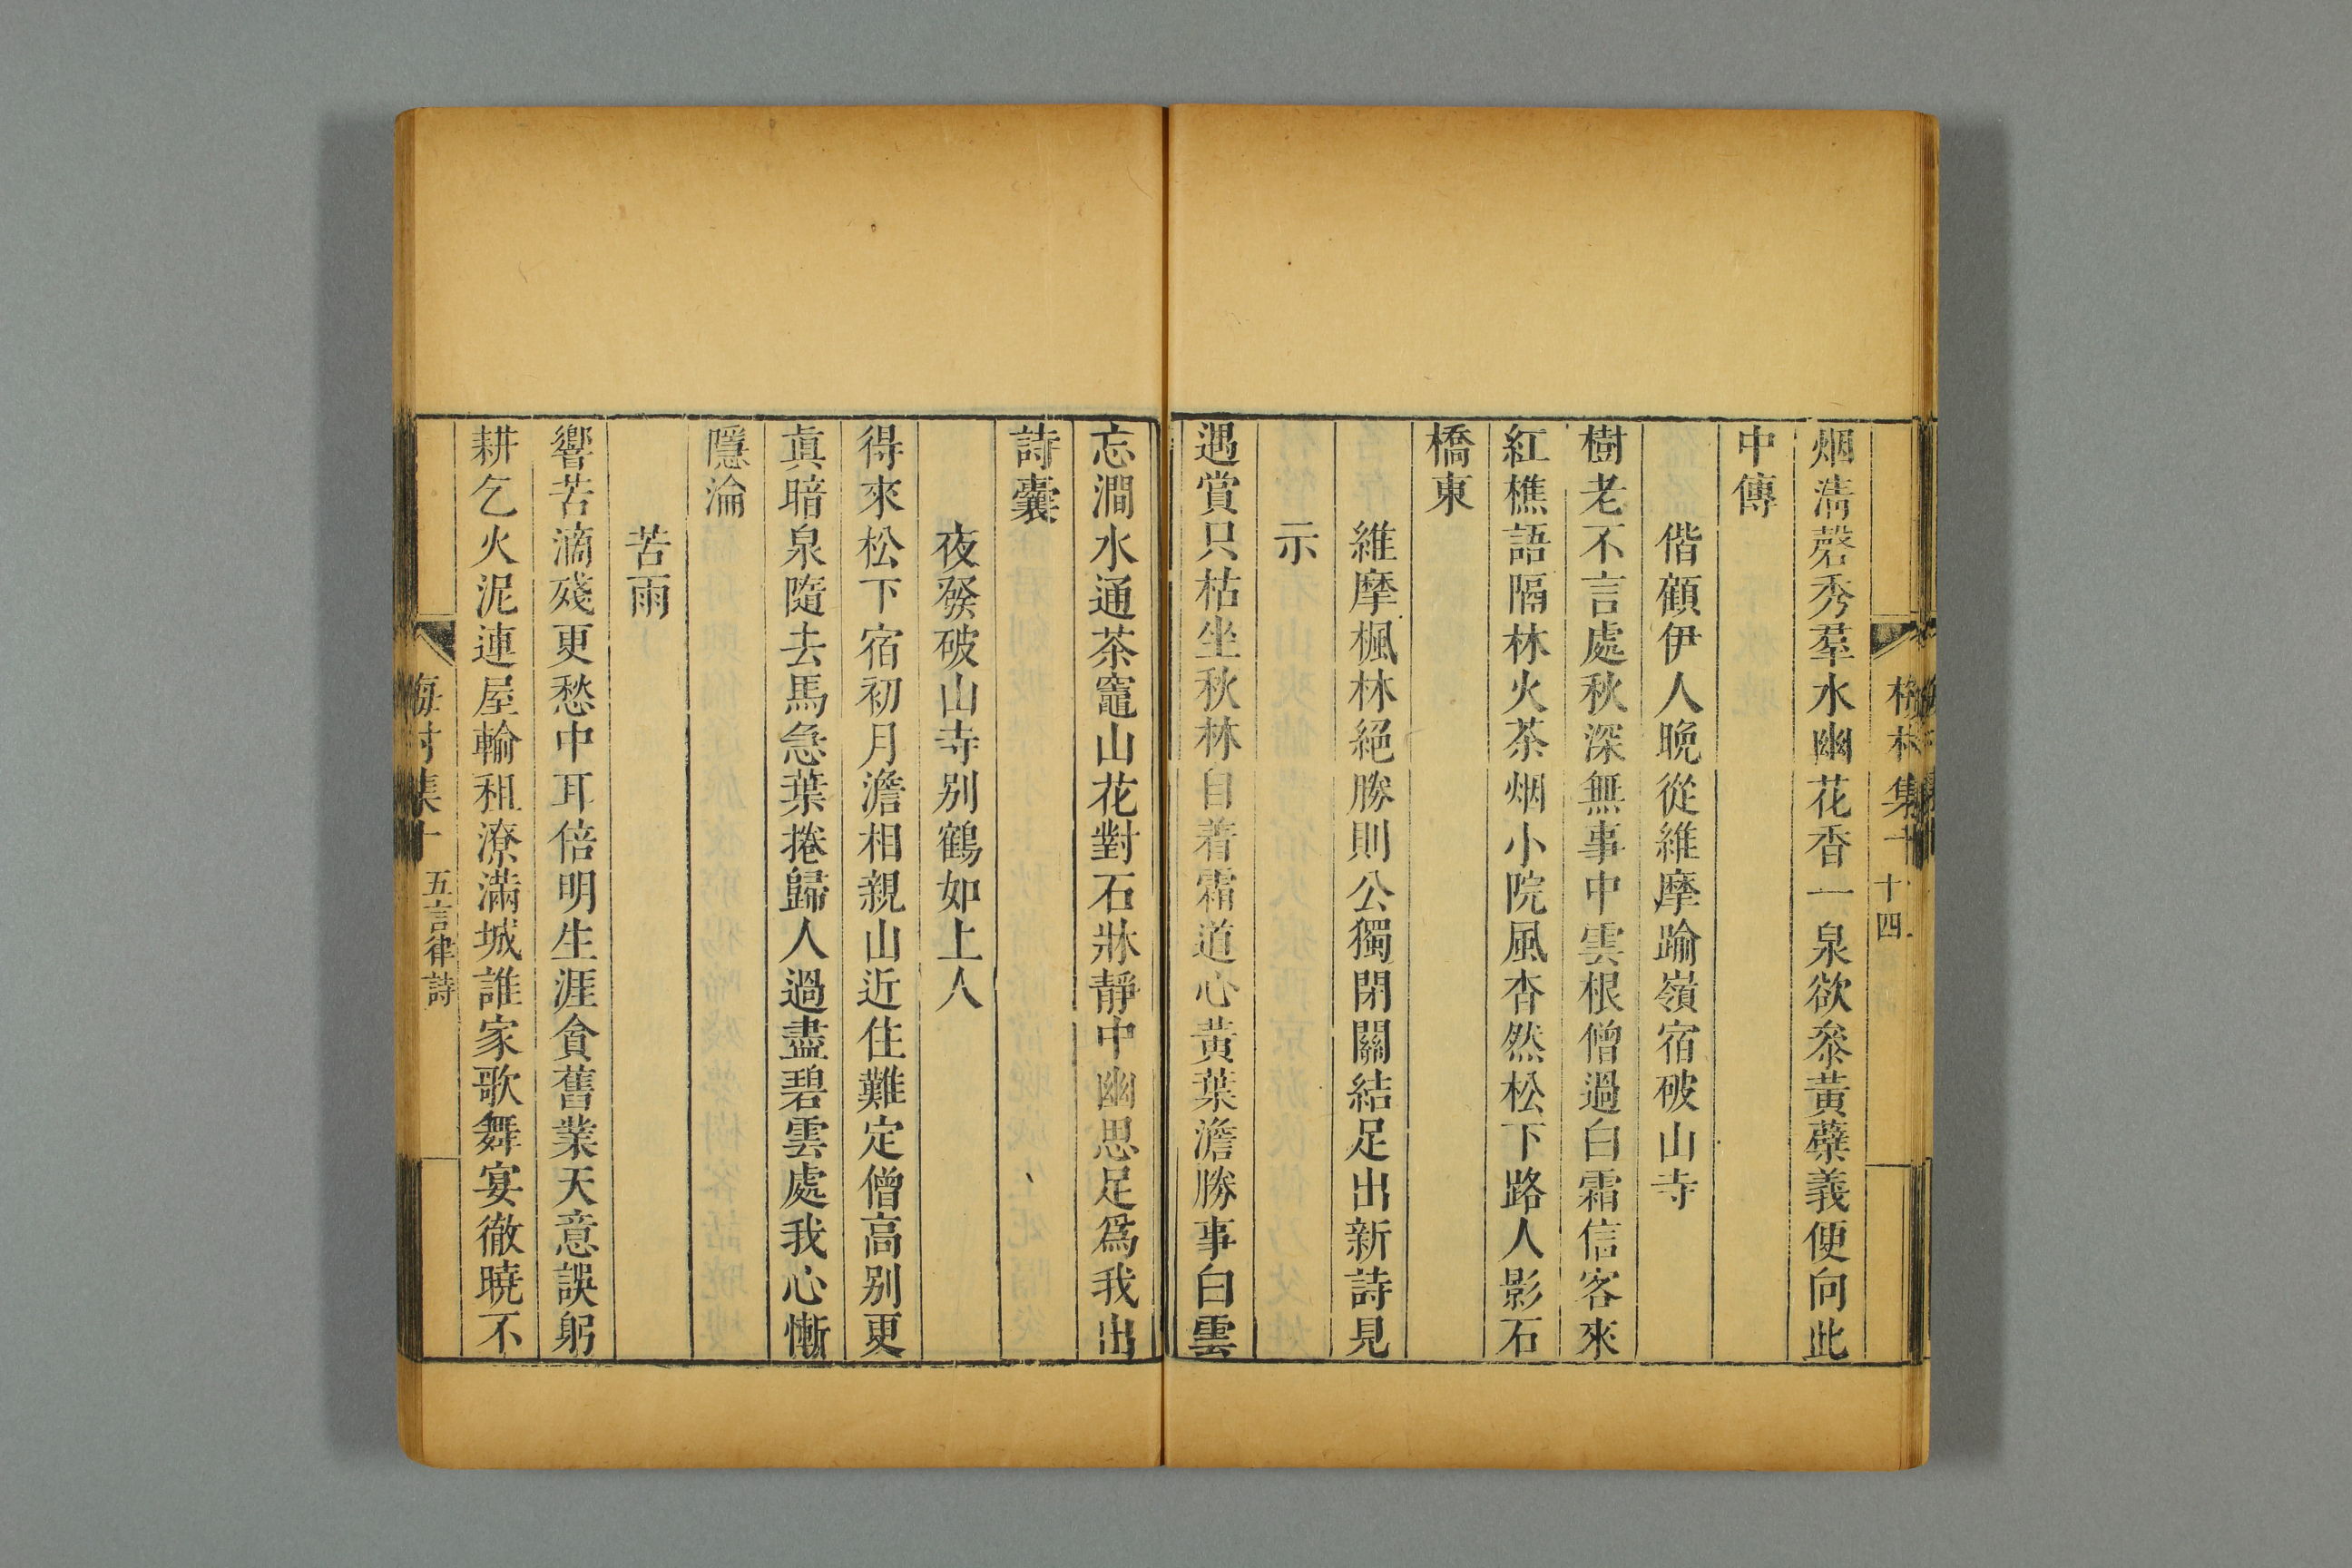 十四
烟淸磬秀羣水幽花香一泉欲叅黃蘗義便向此
中傳
偕顧伊人晚從維摩踰嶺宿破山寺
樹老不言處秋深無事中雲根僧過白霜信客來
紅樵語隔林火茶烟小院風杳然松下路人影石
橋東
維摩楓林絕勝則公獨閉關結足出新詩見
示
遇賞只枯坐秋林自着霜道心黃葉澹勝事白雲
忘澗水通茶竈山花對石牀靜中幽思足爲我出
詩囊
夜發破山寺别鶴如上人
得來松下宿初月澹相親山近住難定僧高别更
眞暗泉隨去馬急葉捲歸人過盡碧雲處我心慚
隱淪
苦雨
響苦滴殘更愁中耳倍明生涯貪舊業天意誤躬
耕乞火泥連屋輸租潦滿城誰家歌舞宴徹曉不
五言律詩